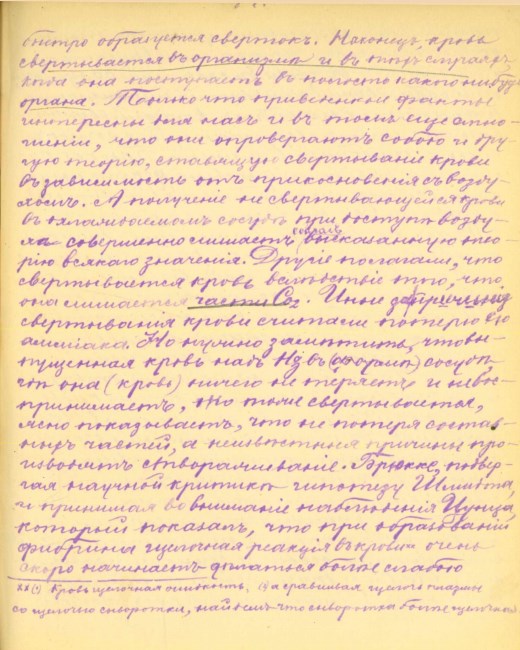 быстро образуется свертокъ. Наконецъ, кровь
свертывается въ организмѣ и въ томъ случаѣ,
когда она поступаетъ въ полость какого нибудь
органа. Только что приведенные факты
интересны для насъ и въ томъ еще отно-
шеніи, что они опровергаютъ собою и дру-
гую теорію, ставящую свертываніе крови
въ зависимость отъ прикосновенія съ возду-
хомъ. А полученіе не свертывающейся крови
въ сосудѣ при доступѣ возду-
ха совершенно лишаетъ высказанную тео-
рію всякаго значенія. Другіе полагали, что
свертывается кровь вслѣдствіе того, что
она лишается части Co₂. Иные причиной
свертыванія крови считали потерю ею
амміака. Но нужно замѣтить, что вы-
пущенная кровь надъ Hg въ сосудъ,
гдѣ она (кровь) ничего не теряетъ и не во-
принимаетъ, тоже свертывается,
ясно показываетъ, что не потеря состав-
ныхъ частей, а неизвѣстныя причины про-
изводятъ створаживаніе. Брюкке, подвер-
гая научной критикѣ гипотезу Шмидта,
и принимая во вниманіе наблюденія Цунца,
который показалъ, что при образованіи
фибрина щелочная реакція въ крови очень
скоро начинаетъ дѣлаться болѣе слабою
Кровь щелочная жидкость, а сравнивая щелочь плазмы
со щелочью сыворотки, найдемъ что сыворотка болѣе щелочна